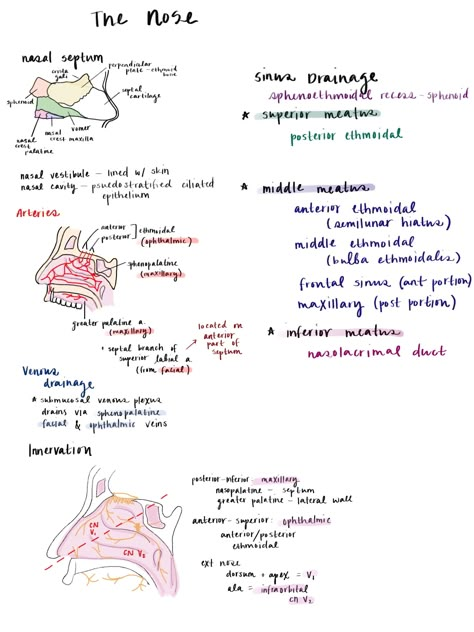 The Nose
nasal septum
crista
galli
perpendicular
plate - ethmoid
bone
sphenoid
septal
cartilage
vomer
nasal
crest maxilla
nasal
crest
palatine
nasal vestibule - lined w/ skin
nasal cavity - psuedostratified ciliated
epithelium
Arteries
anterior
posterior
ethmoidal
(ophthalmic)
sphenopalatine
(maxillary)
greater palatine a.
(maxillary)
+ septal branch of
superior labial a.
(from facial)
located on
anterior
part of
septum
Venous
drainage
* submucosal venous plexus
drains via sphenopalatine
facial & ophthalmic veins
sinus Drainage
sphenoethmoidal recess - sphenoid
* superior meatus
posterior ethmoidal
* middle meatus
anterior ethmoidal
(semilunar hiatus)
middle ethmoidal
(bulba ethmoidalis)
frontal sinus (ant portion)
maxillary (post portion)
* inferior meatus
nasolacrimal duct
Innervation
CN
V₁
CN V₂
posterior-inferior- maxillary
nasopalatine - septum
greater palatine - lateral wall
anterior-superior: ophthalmic
anterior/posterior
ethmoidal
ext nose
dorsum + apex = V₁
ala = infraorbital
CN V₂